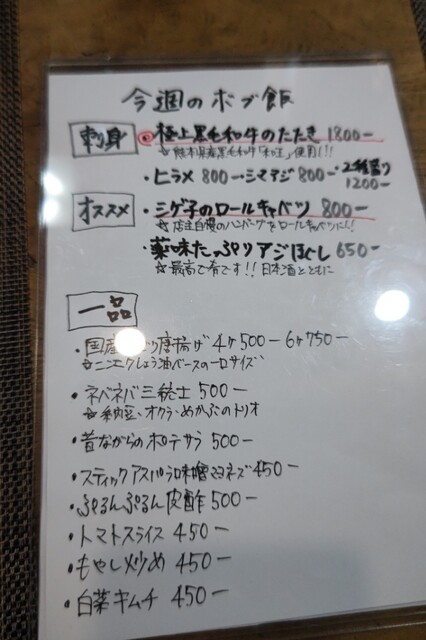 今週のボブ飯
刺身
極上黒毛和牛のたたき 1800ー
☆熊本県産黒毛和牛「和王」使用!!
・ヒラメ 800ー シマアジ 800ー ・2種盛り
1200ー
オススメ
・シゲ子のロールキャベツ 800ー
☆店主自慢のハンバーグをロールキャベツに!!
・薬味たっぷりアジほぐし 650ー
☆最高で有です!! 日本酒とともに
一品
・国産 唐揚げ 4ヶ500ー 6ヶ750ー
☆ニンニクしょう油ベースの一口サイズ
・ネバネバ三銃士 500ー
☆納豆、オクラ、めかぶのトリオ
・昔ながらのポテサラ 500ー
・スティックアスパラ味噌マヨネーズ 450ー
・ぷるんぷるん皮酢 500ー
・トマトスライス 450ー
・もやし炒め 450ー
・白菜キムチ 450ー